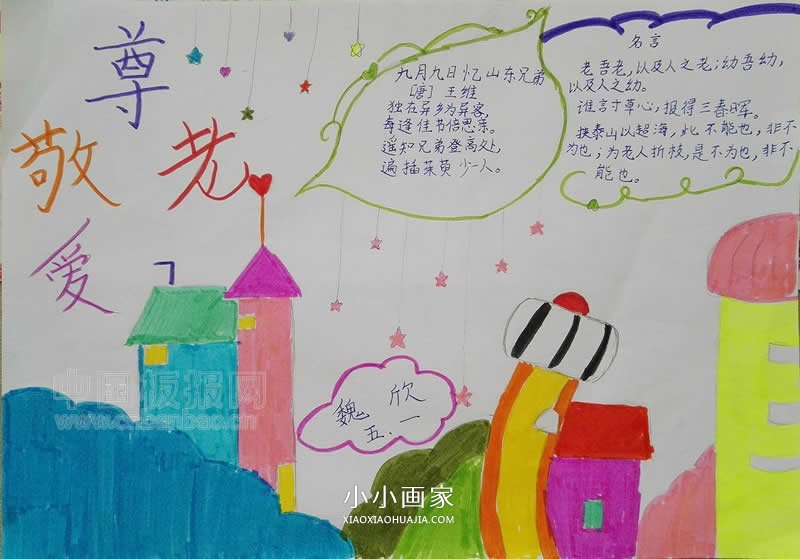 尊
敬 老
爱
九月九日忆山东兄弟
[唐] 王维
独在异乡为异客,
每逢佳节倍思亲。
遥知兄弟登高处,
遍插茱萸少一人。
名言
老吾老,以及人之老;幼吾幼,
以及人之幼。
谁言寸草心,报得三春晖。
挟泰山以超海,此不能也,非不
为也;为老人折枝,是不为也,非不
能也。
魏 欣
五.一
中国板报网
小小画家
XIAOXIAOHUAJIA.COM